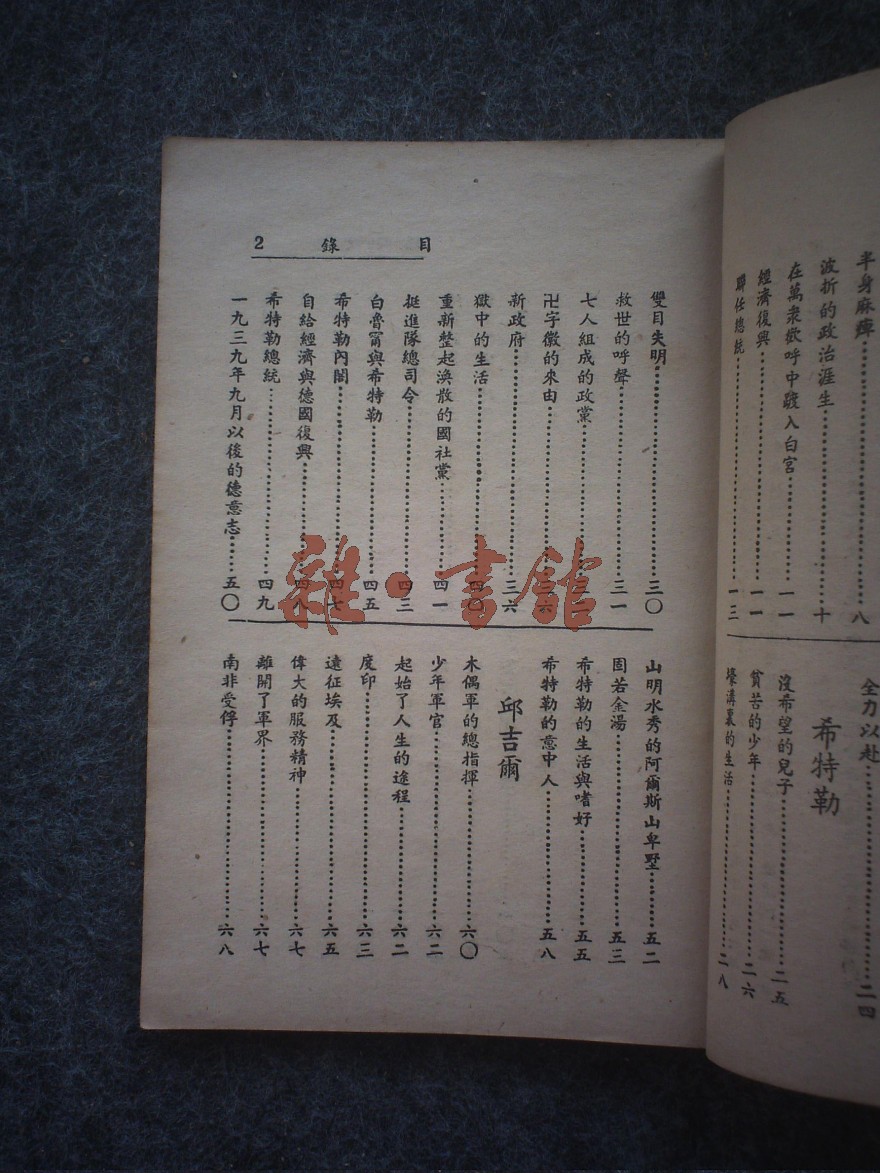 半身麻痺 八
波折的政治涯生 十
在萬衆歡呼中踱入白宮 一一
經濟復興 一一
聯任總統 一三
全力以赴 二四
希特勒
沒希望的兒子 二五
貧苦的少年 二六
壕溝裏的生活 二八
目錄 2
雙目失明 三〇
救世的呼聲 三一
七人組成的政黨
卍字徽的來由
新政府 三六
獄中的生活 四〇
重新整起渙散的國社黨 四一
挺進隊總司令 四三
白魯甯與希特勒 四五
希特勒內閣 四七
自給經濟與德國復興 四八
希特勒總統 四九
一九三九年九月以後的德意志 五〇
山明水秀的阿爾斯山卑墅 五二
固若金湯 五三
希特勒的生活與嗜好 五五
希特勒的意中人 五八
邱吉爾
木偶軍的總指揮 六〇
少年軍官 六二
起始了人生的途程 六二
度印 六三
遠征埃及 六五
偉大的服務精神 六七
離開了軍界 六七
南非受俘 六八
雜·書館